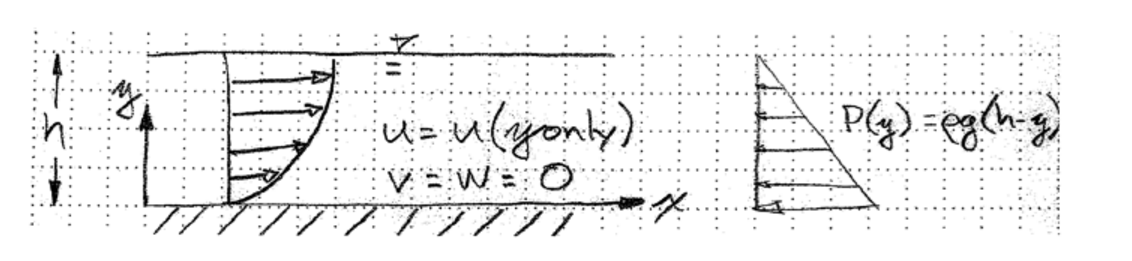 y
h
u = u(y only)
v = w = 0
x
P(y) = ρg(h-y)